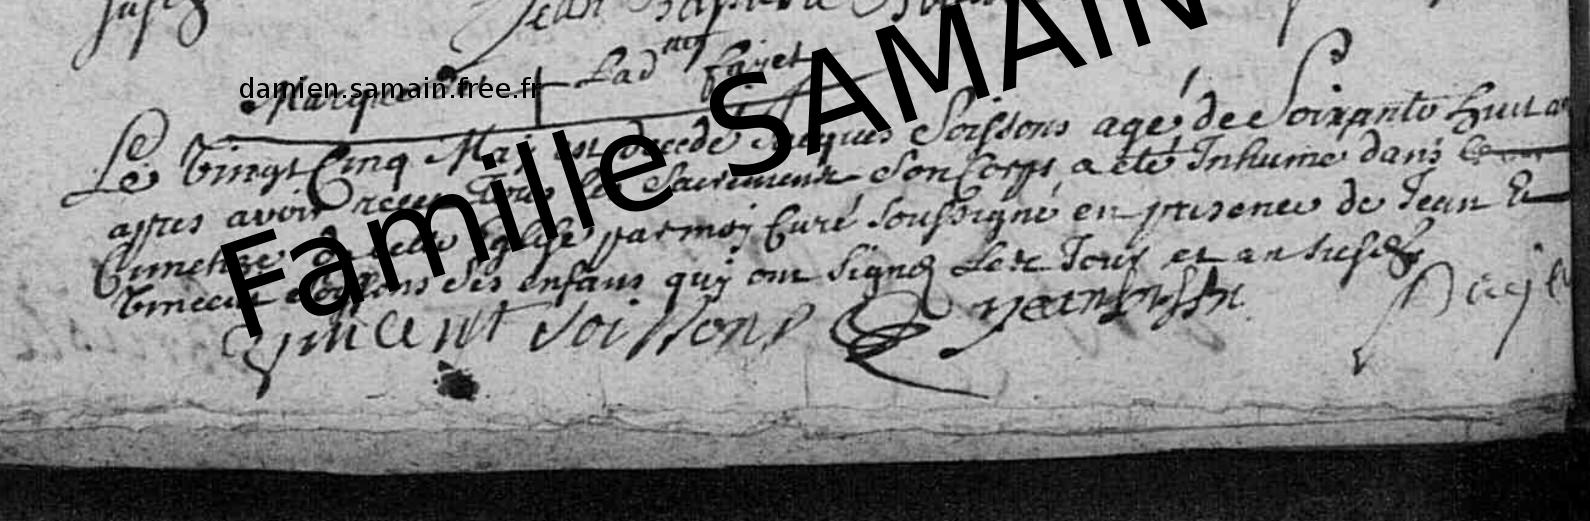 Jean Baptiste
damien.samain.free.fr
Famille SAMAIN
Marque + Ladmr fayet
Le Vingt Cinq May est decedé Jacques Soissons agé de Soixante huit
appres avoir receu Tous les Sacremens Son Corps a eté Inhumé dans le
Cimetiere de cette Eglise par moy Curé soussigné en presence de Jean Et
Vincent Soissons Ses enfans quy ont Signez Les Jour et an susd
Vincent Soissons Jean Soissons